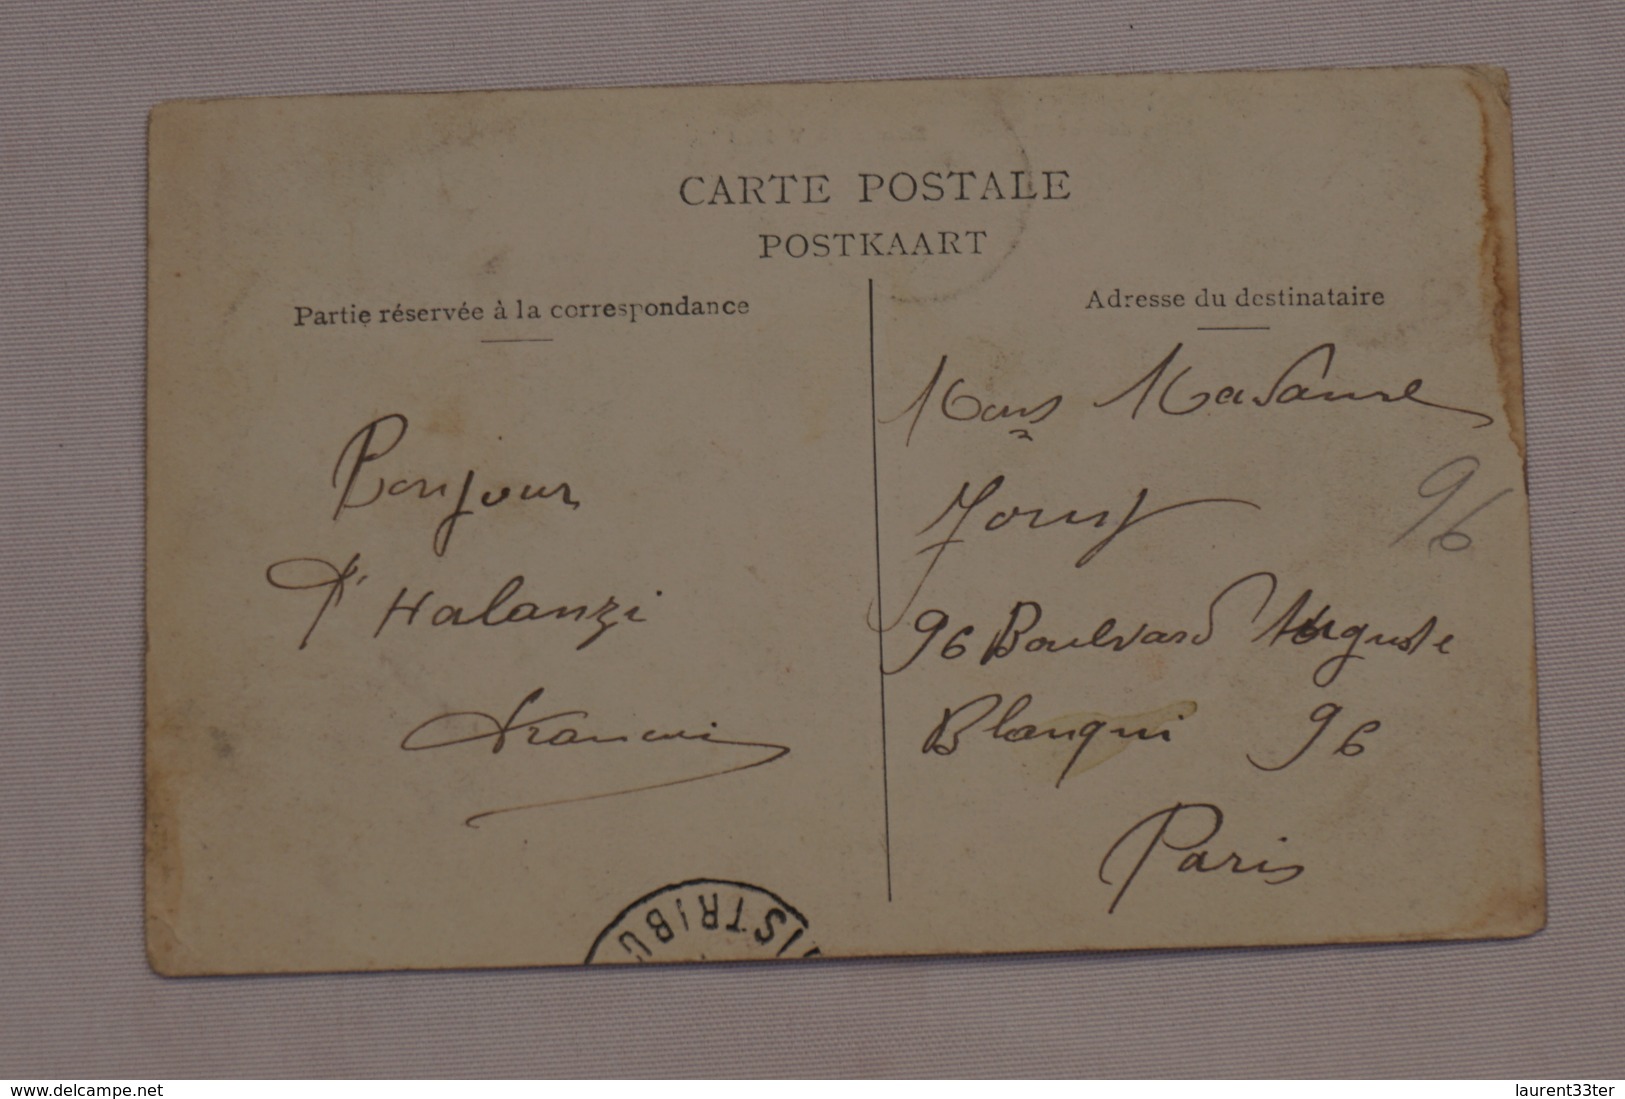 CARTE POSTALE
POSTKAART
Partie réservée à la correspondance
Adresse du destinataire
Bonjour
d'Halanzi
Mons Madame
96
96 Boulvard Auguste
Blanqui 96
Paris
ISTRIBU
www.delcampe.net
laurent33ter